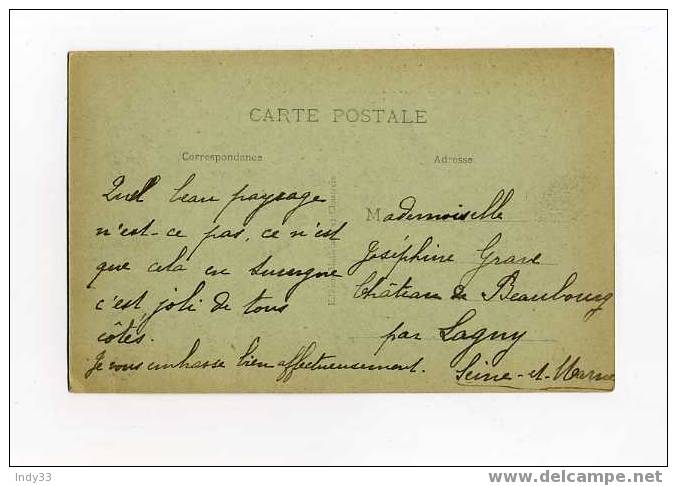 CARTE POSTALE
Correspondance
Adresse
Quel beau paysage
n'est-ce pas, ce n'est
que cela en Auvergne
c'est joli de tous
côtés.
Je vous embrasse bien affectueusement.
Mademoiselle
Joséphine Grave
Château de Beaubourg
par Lagny
Seine-et-Marne
Indy33
www.delcampe.net